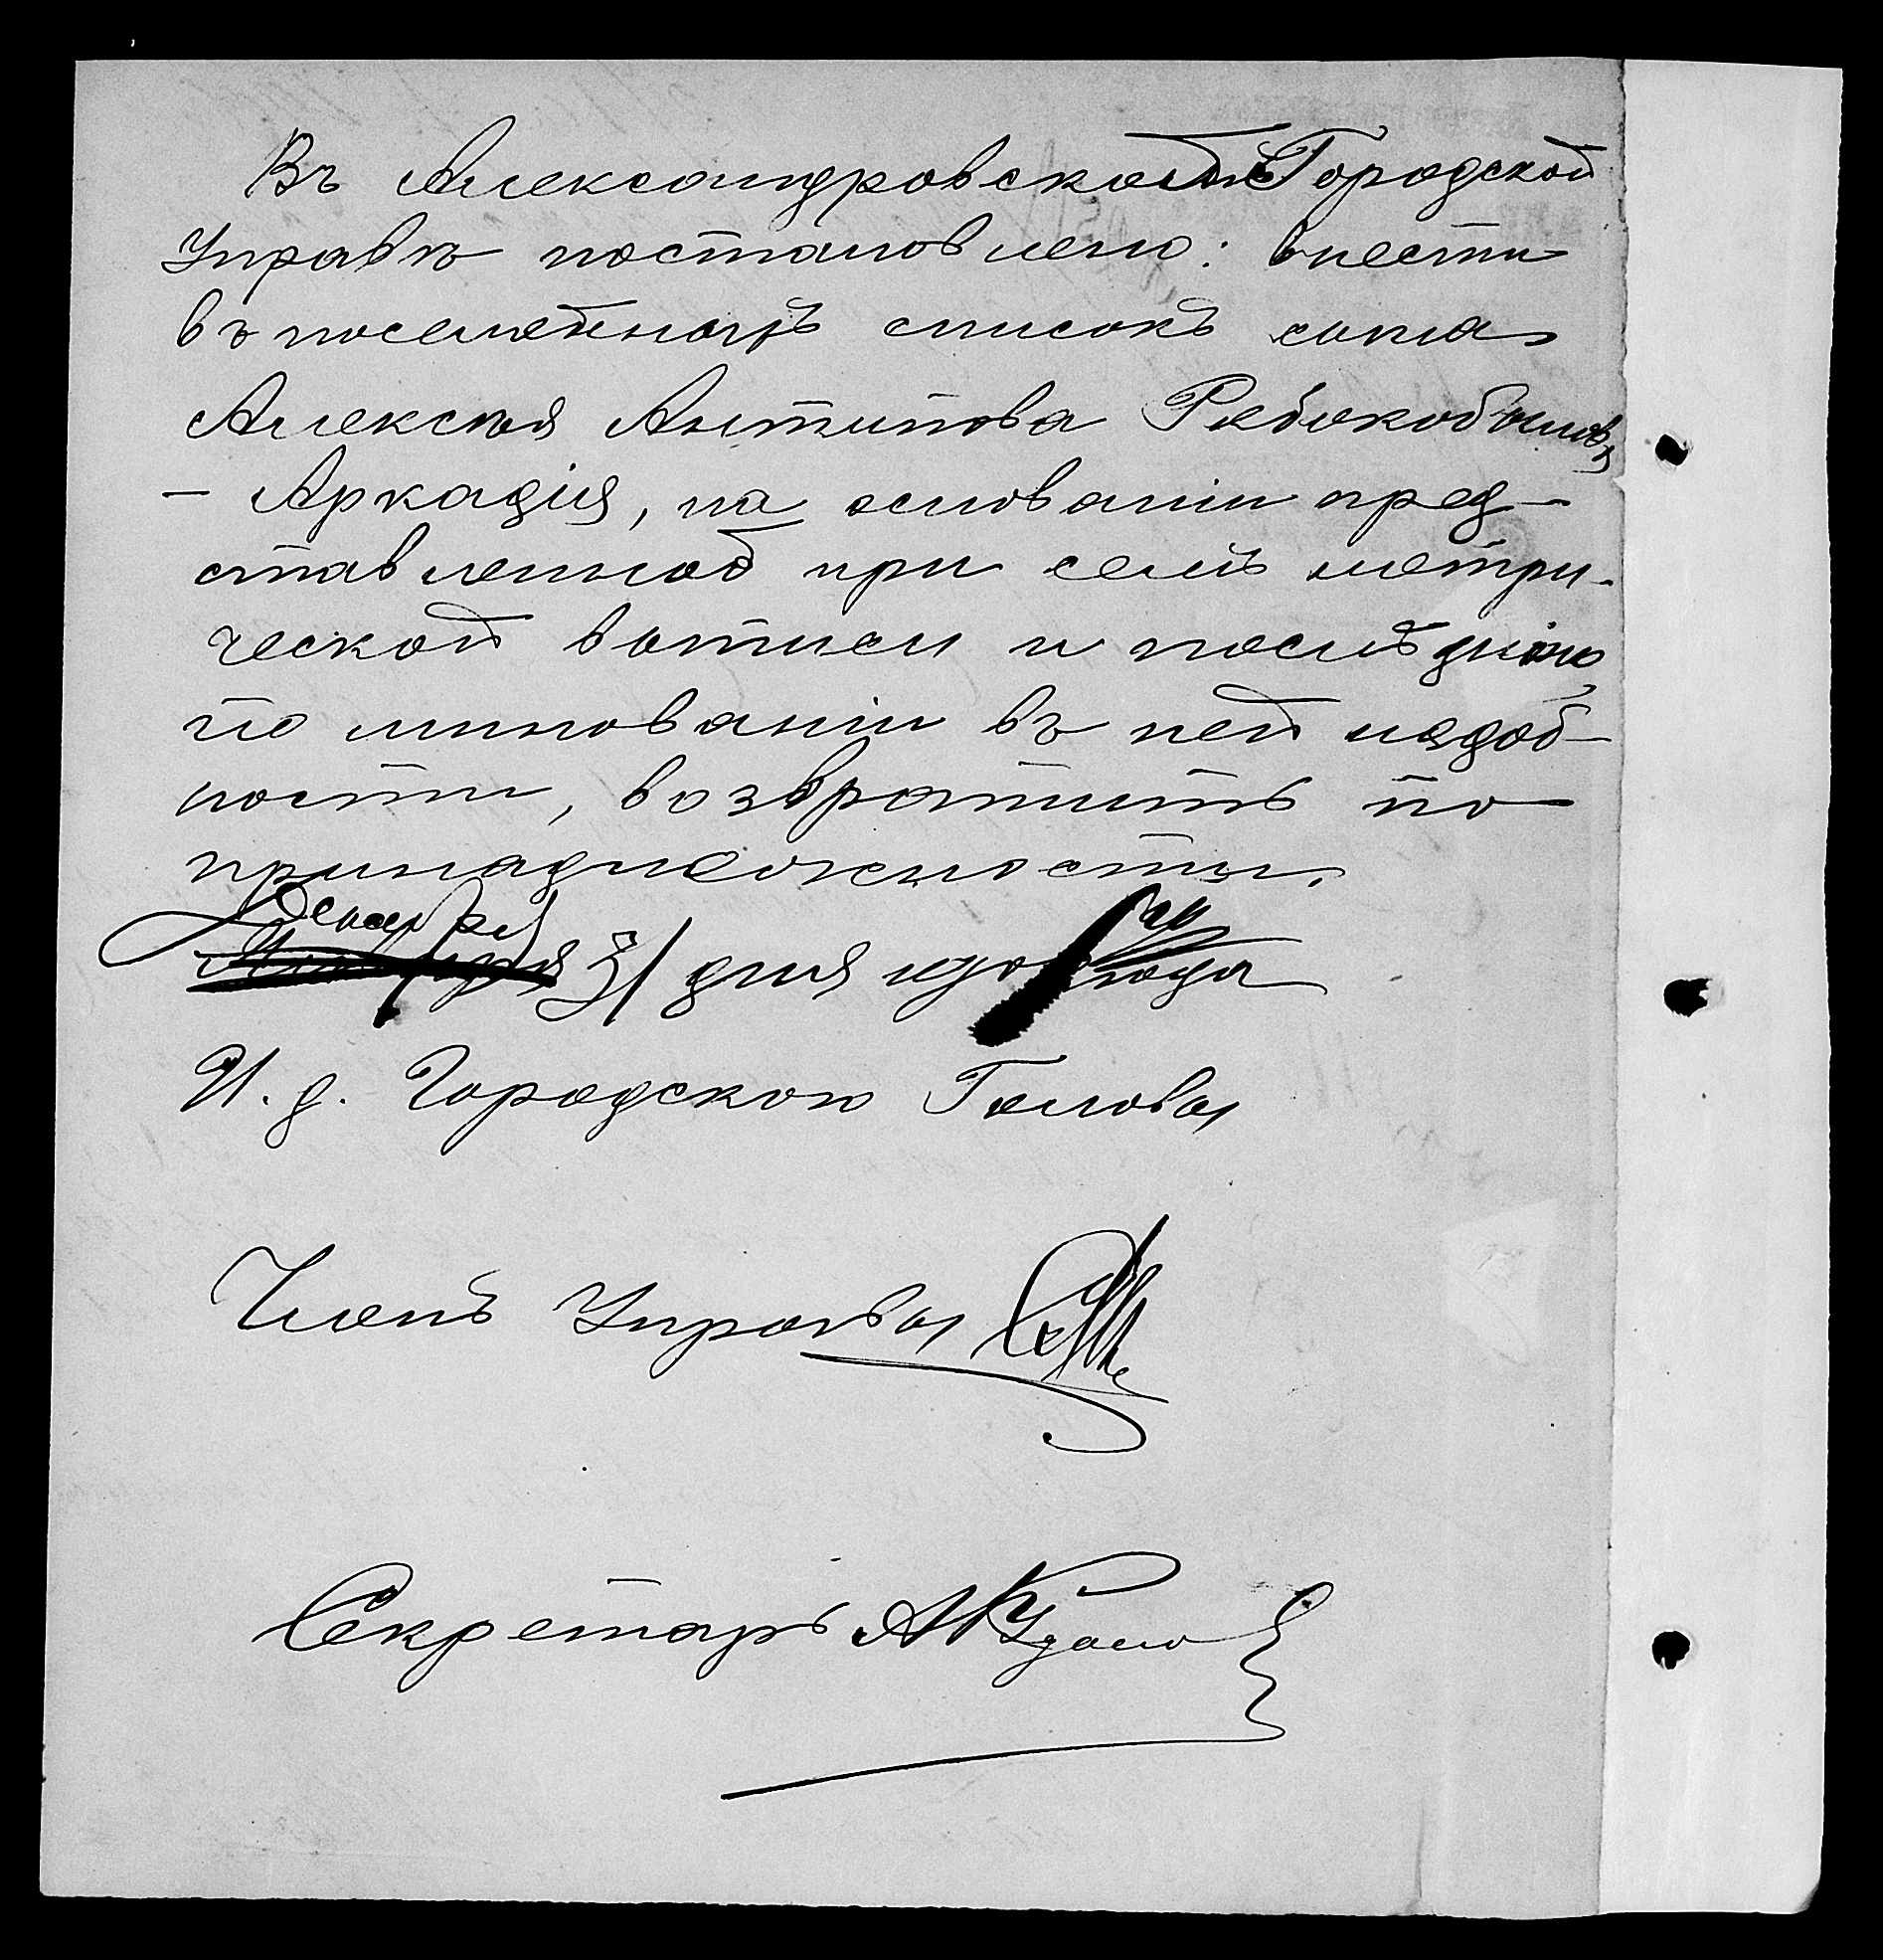 Въ Александровской Городской
Управѣ постановлено: внести
въ посемейный списокъ сына
Алексѣя Антипова Рябокобылова
— Аркадія, на основаніи пред-
ставленной при семъ метри-
ческой выписи и послѣднюю
по минованіи въ ней надоб-
ности, возвратить по
принадлежности.
Декабря
31 дня года
И. д. Городского Головы
Членъ Управы
Секретарь